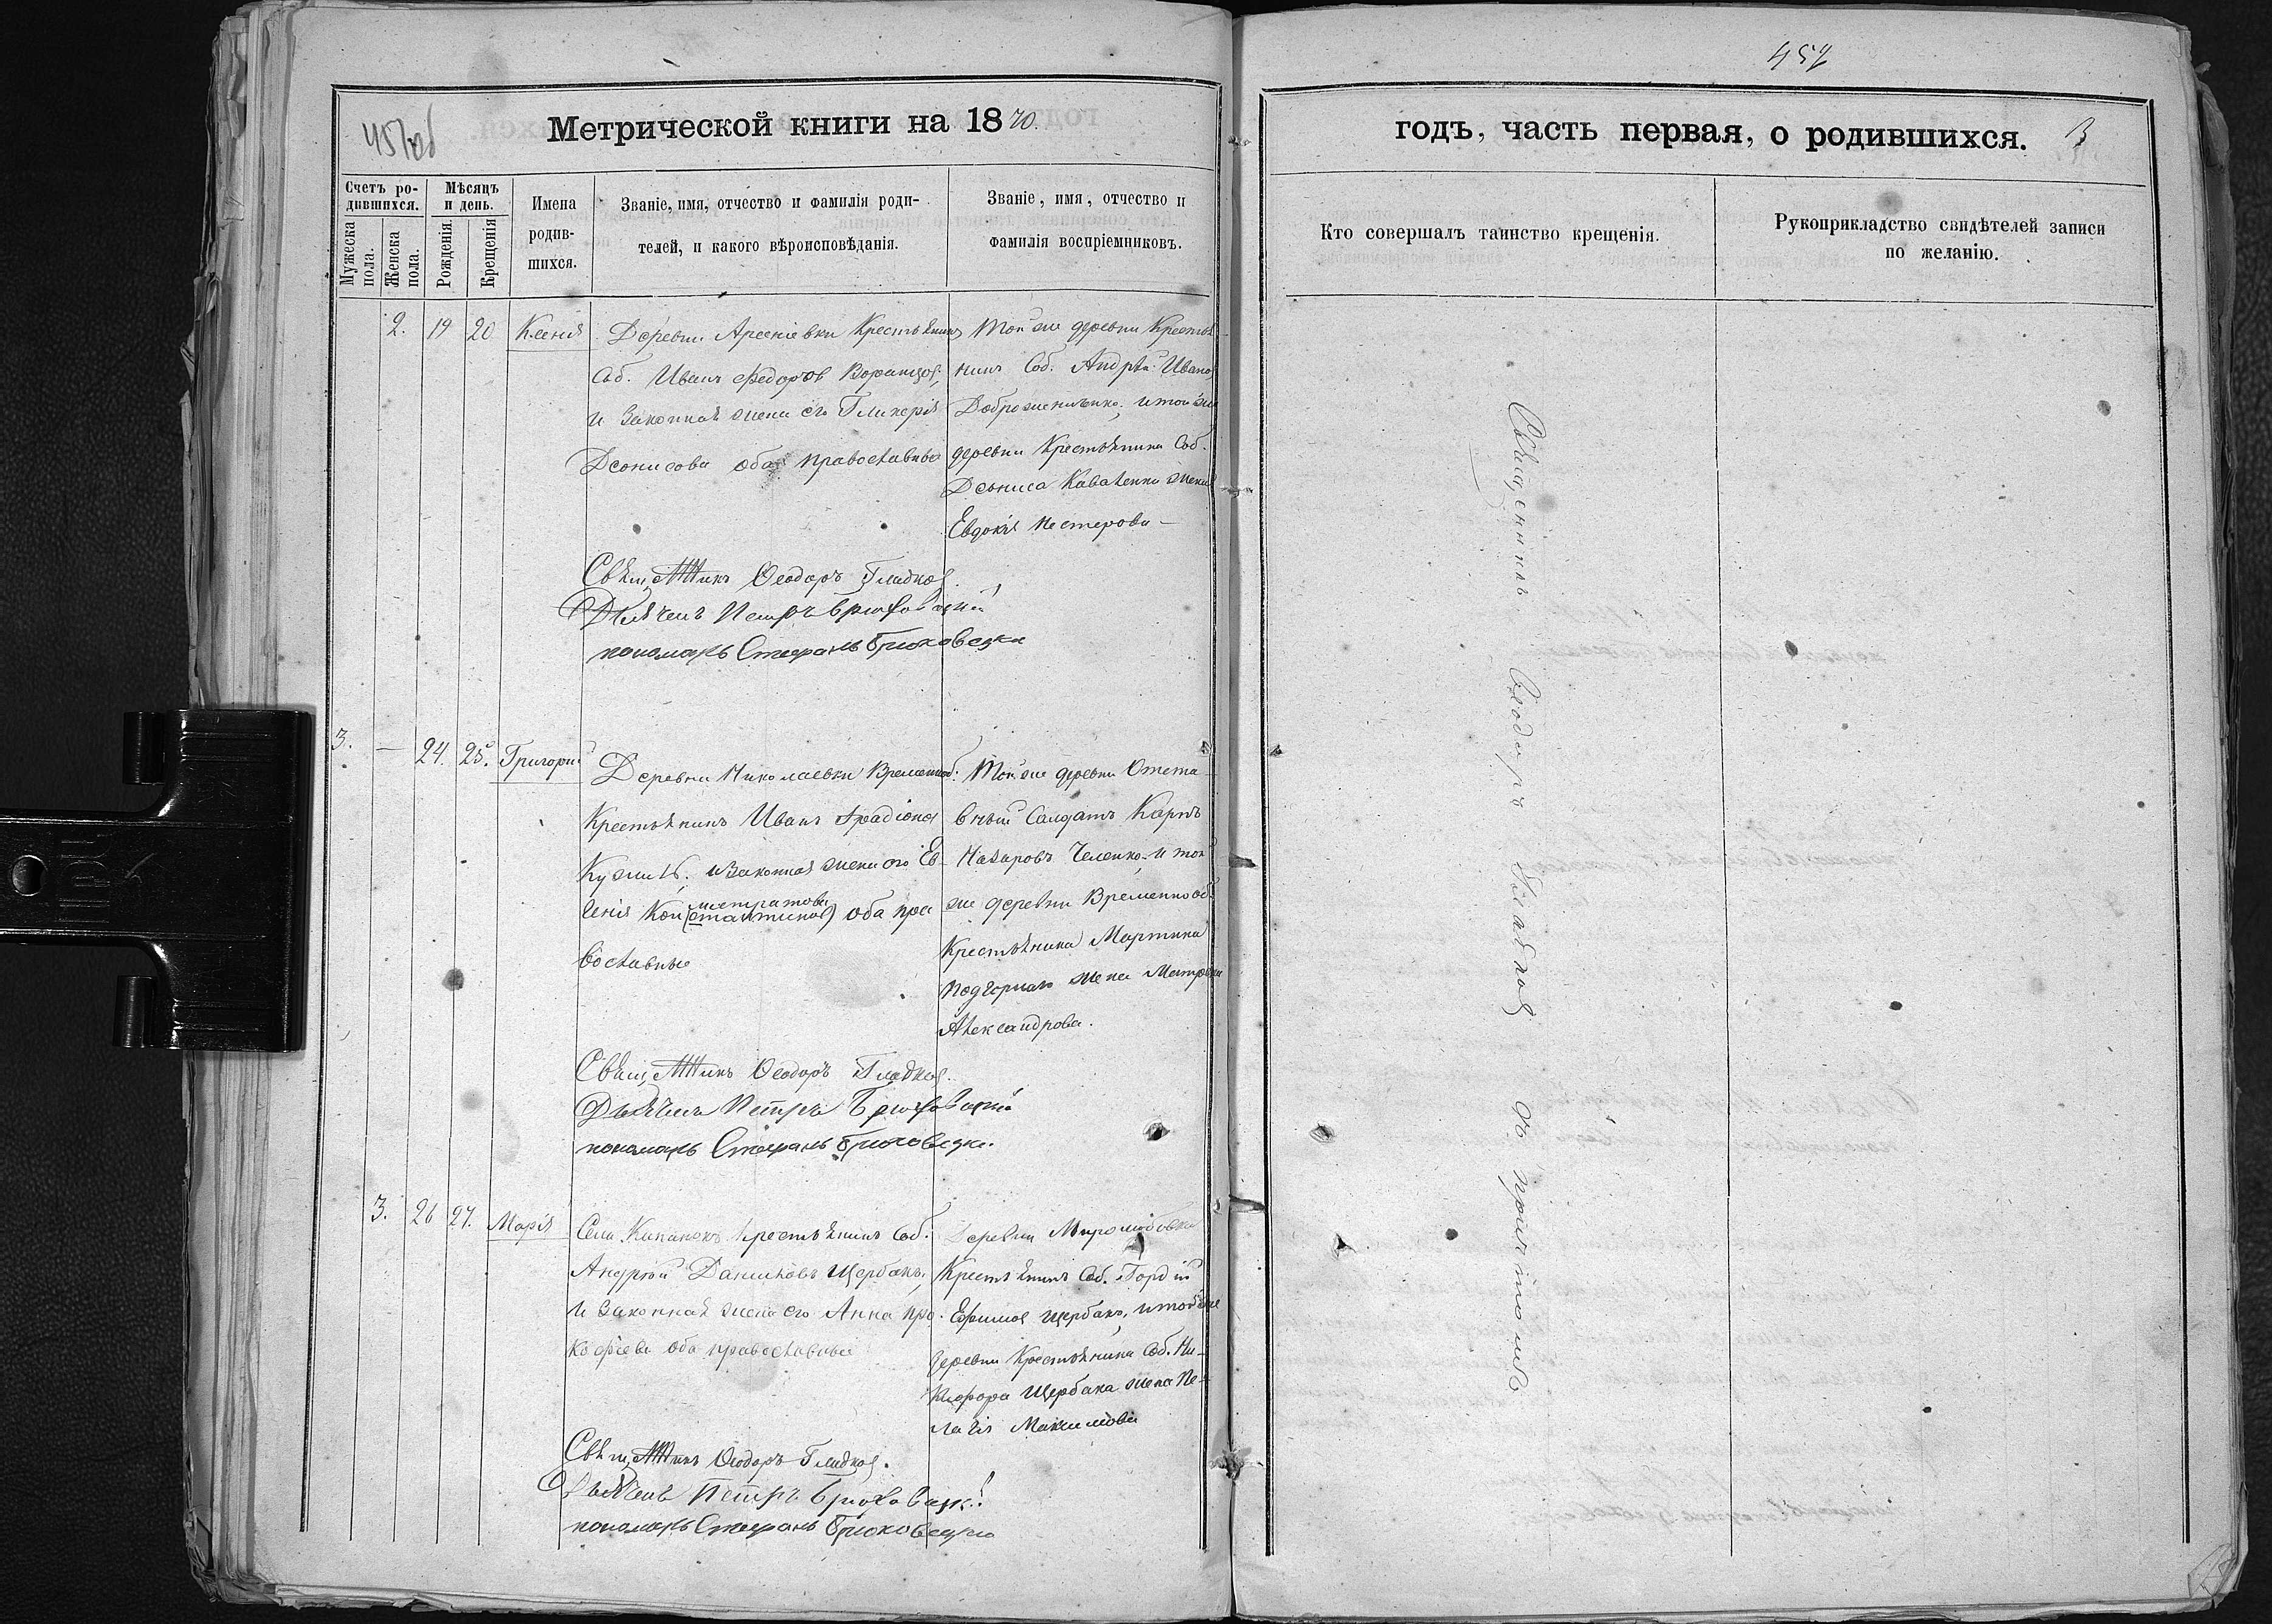 457
457об
Метрической книги на 1870.
годъ, часть первая, о родившихся. 3
Счетъ ро-
дившихся.
Мѣсяцъ
и день.
Мужеска
пола.
Женска
пола.
Рожденія
Крещенія
Имена
родив-
шихся.
Званіе, имя, отчество и фамилія роди-
телей, и какого вѣроисповѣданія.
Званіе, имя, отчество и
фамилія воспріемниковъ.
Кто совершалъ таинство крещенія.
Рукоприкладство свидѣтелей записи
по желанію.
2. 19 20 Ксенія
Деревни Арсеніевки Крестьянинъ
Соб. Иванъ Федоровъ
и законная жена его Гликерія
Деонисова оба православные
Той же деревни Крестья-
нинъ Соб. Андрѣй Ивано
и той же
деревни Крестьянина Соб.
Деониса Каваленка жена
Евдокія Нестерова
Священникъ Ѳеодоръ Гладкой
Дьячекъ Петръ Брюховецкій
пономарь Стефанъ Брюховецки
3. — 24. 25. Григорій
Деревни Николаевки Временнооб.
Крестьянинъ Иванъ
и законная жена его Ев-
генія оба пра
вославные
Той же деревни Отста-
вный Салдатъ Карпъ
Назаровъ и той
же деревни Временнооб.
Крестьянина Мартина
жена Матрона
Александрова.
Священникъ Ѳеодоръ Гладкой.
Дьячекъ Петръ Брюховецкій
пономарь Стефанъ Брюховецки.
3. 26 27. Марія
Села Крестьянинъ Соб.
Андрей Даниловъ Щербакъ,
и законная жена его Анна Про-
кофіева оба православные
Деревни
Крестьянинъ Соб. Гордій
Ефимов Щербакъ, и той же
деревни Крестьянина Соб. Ни-
кифора Щербака жена Пе-
лагія Максимова
Священникъ Ѳеодоръ Гладкой.
Дьячекъ Петръ Брюховецкі
пономарь Стефанъ Брюховецки
Священникъ Ѳеодоръ Гладкой съ причтомъ